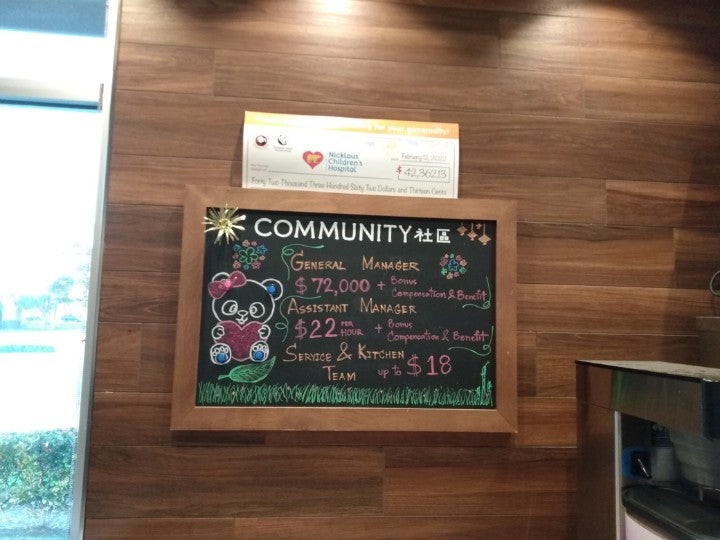 for your generosity!
Nicklaus
Children's
Hospital
February 12, 2022
$ 42,362.13
Forty Two Thousand Three Hundred Sixty Two Dollars and Thirteen Cents
COMMUNITY 社區
GENERAL MANAGER
$72,000 + Bonus
Compensation & Benefit
ASSISTANT MANAGER
$22 PER HOUR + Bonus
Compensation & Benefit
SERVICE & KITCHEN
TEAM up to $18